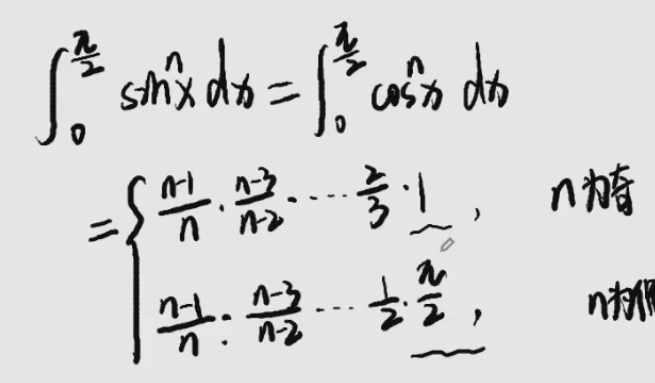 ∫₀^(π/2) sinⁿx dx = ∫₀^(π/2) cosⁿx dx
= { (n-1)/n · (n-3)/(n-2) · ⋯ 2/3 · 1 , n为奇
(n-1)/n · (n-3)/(n-2) ⋯ 1/2 · π/2 , n为偶